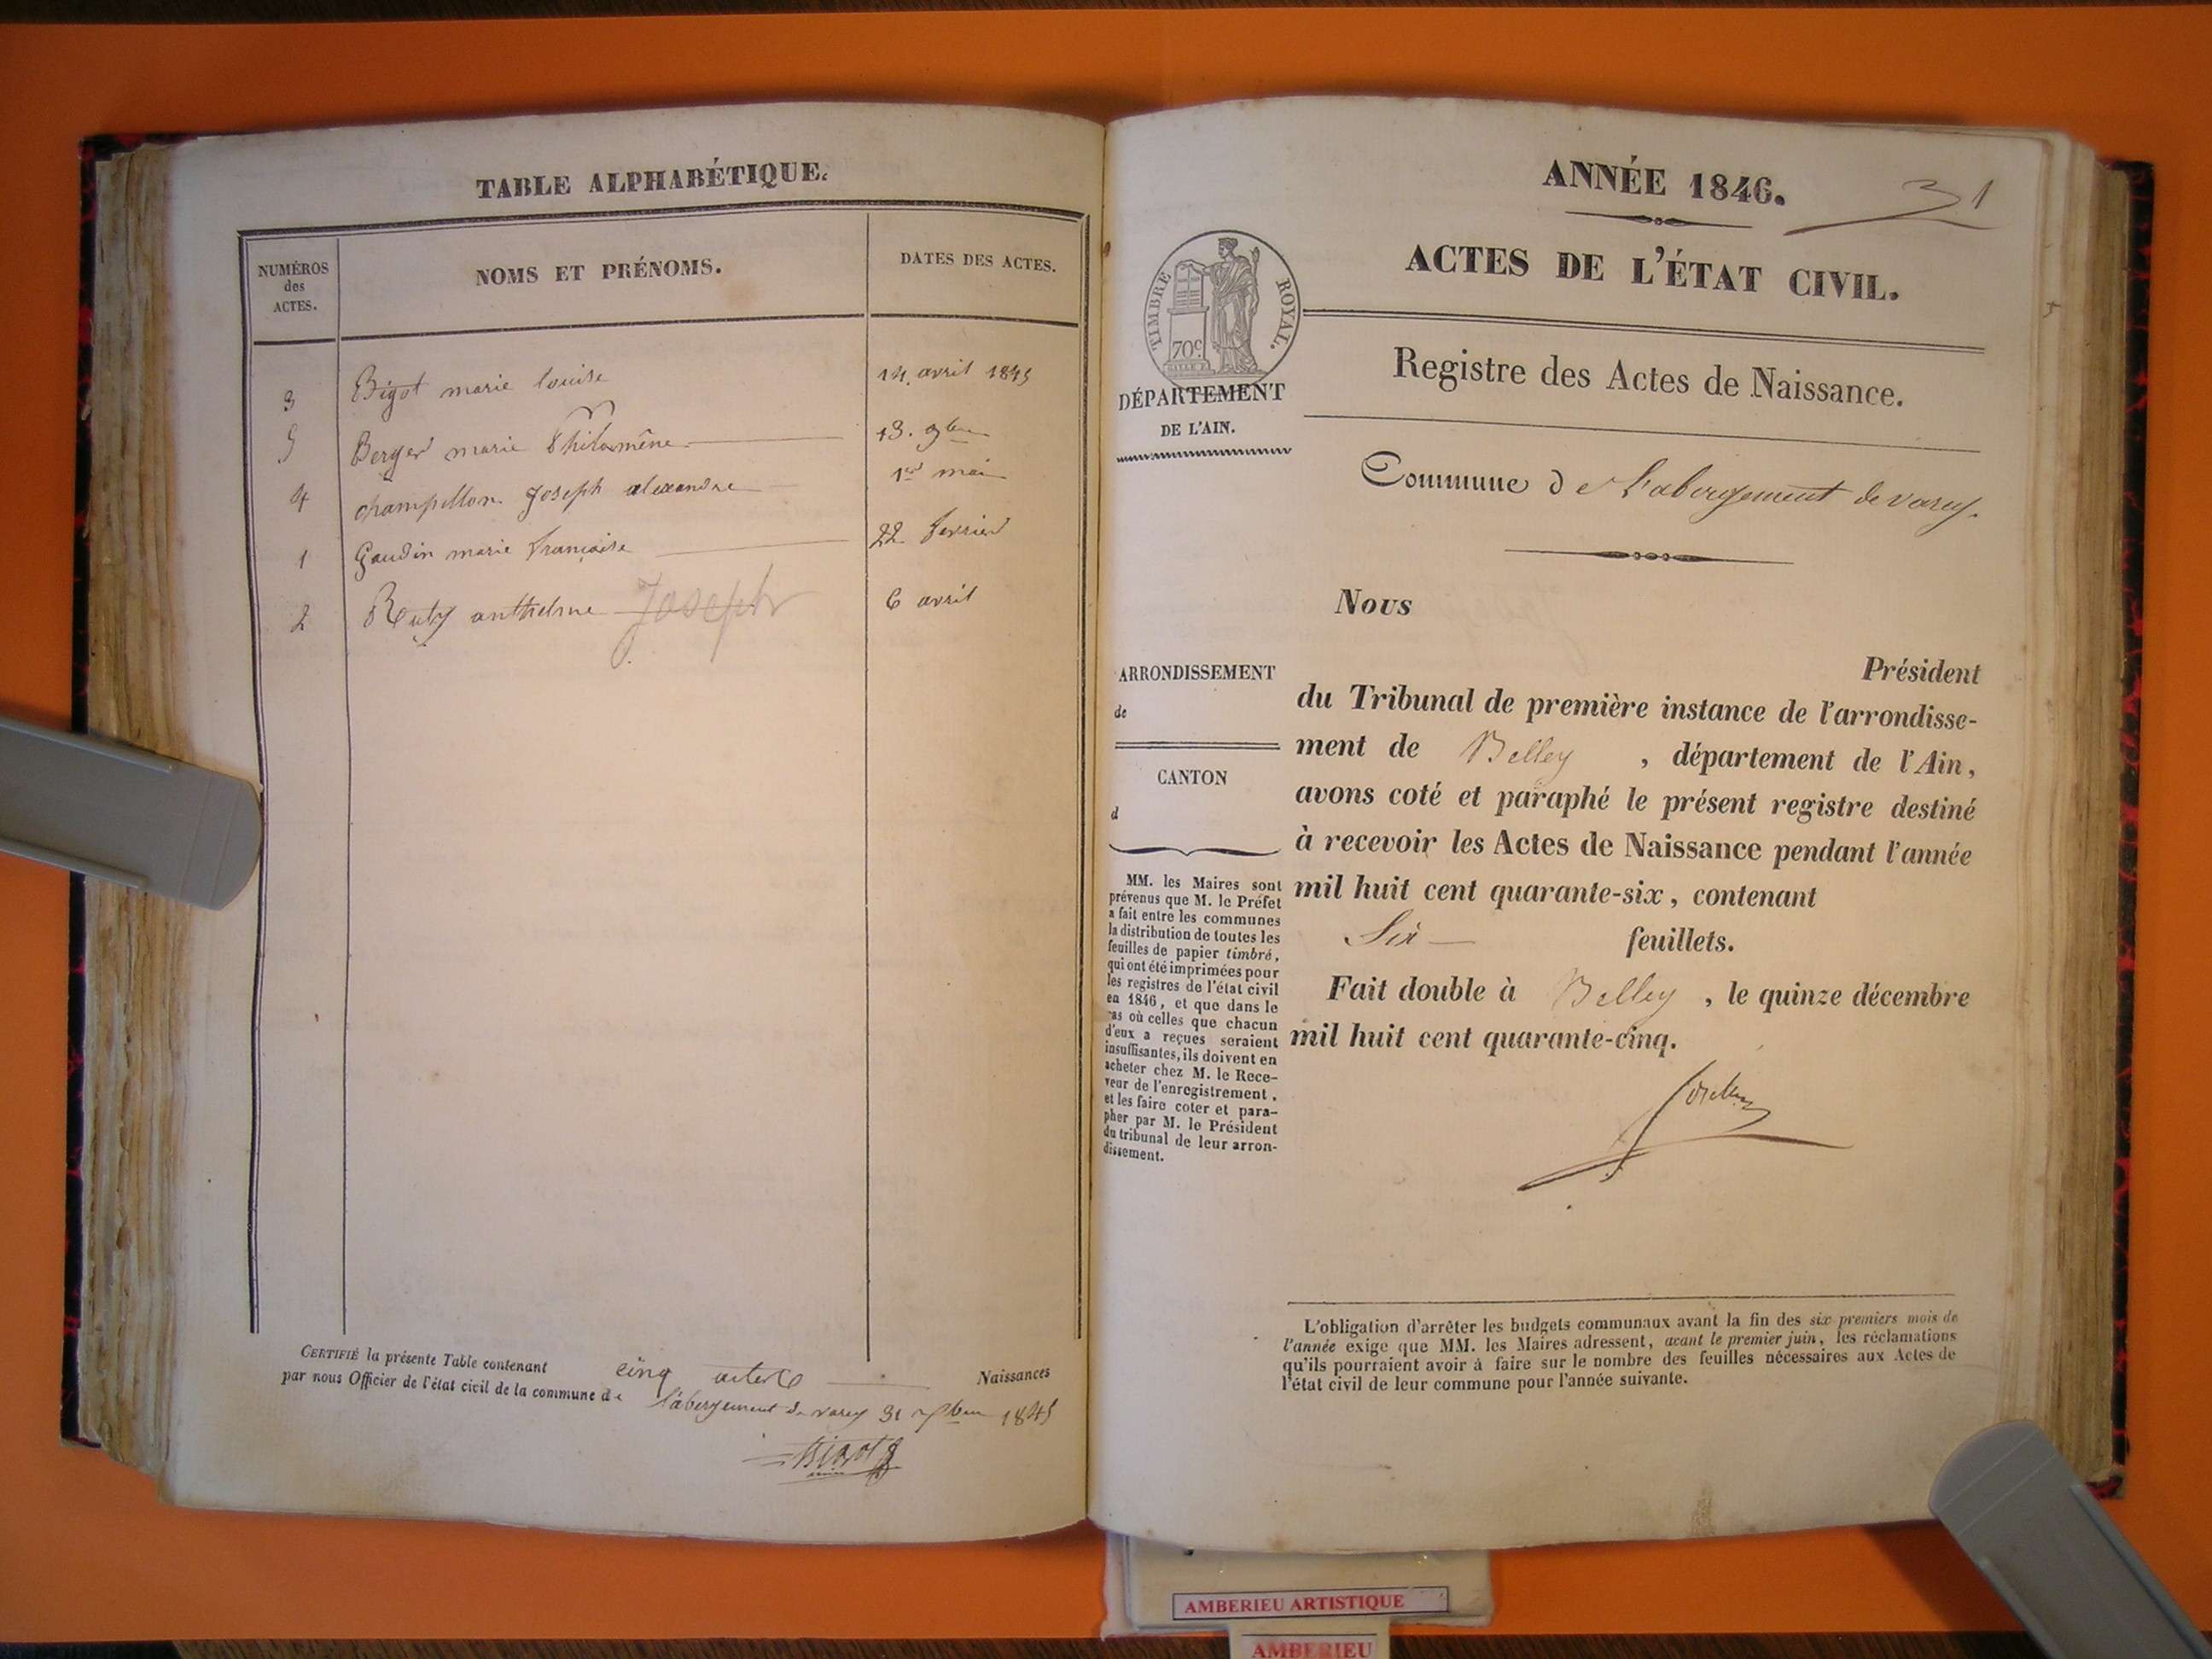 TABLE ALPHABÉTIQUE.
NUMÉROS
des
ACTES.
NOMS ET PRÉNOMS.
DATES DES ACTES.
3 Bigot marie louise 14. avril 1845
5 Berger marie Philomène 13. 9bre
4 champillon Joseph alexandre 1er mai
1 Gaudin marie françoise 22 fevrier
2 Ruty anthelme Joseph 6 avril
CERTIFIÉ la présente Table contenant cinq actes Naissances
par nous Officier de l'état civil de la commune de l'abergement de varey 31 Xbre 1845
Bigot
ANNÉE 1846.
31
ACTES DE L'ÉTAT CIVIL.
TIMBRE ROYAL.
70c
DÉPARTEMENT
DE L'AIN.
Registre des Actes de Naissance.
Commune de L'abergement de varey.
Nous
Président
du Tribunal de première instance de l'arrondisse-
ment de Belley , département de l'Ain,
avons coté et paraphé le présent registre destiné
à recevoir les Actes de Naissance pendant l'année
mil huit cent quarante-six, contenant
Six feuillets.
Fait double à Belley , le quinze décembre
mil huit cent quarante-cinq.
ARRONDISSEMENT
de
CANTON
d
MM. les Maires sont
prévenus que M. le Préfet
a fait entre les communes
la distribution de toutes les
feuilles de papier timbré,
qui ont été imprimées pour
les registres de l'état civil
en 1846, et que dans le
cas où celles que chacun
d'eux a reçues seraient
insuffisantes, ils doivent en
acheter chez M. le Rece-
veur de l'enregistrement,
et les faire coter et para-
pher par M. le Président
du tribunal de leur arron-
dissement.
L'obligation d'arrêter les budgets communaux avant la fin des six premiers mois de
l'année exige que MM. les Maires adressent, avant le premier juin, les réclamations
qu'ils pourraient avoir à faire sur le nombre des feuilles nécessaires aux Actes de
l'état civil de leur commune pour l'année suivante.
AMBERIEU ARTISTIQUE
AMBERIEU